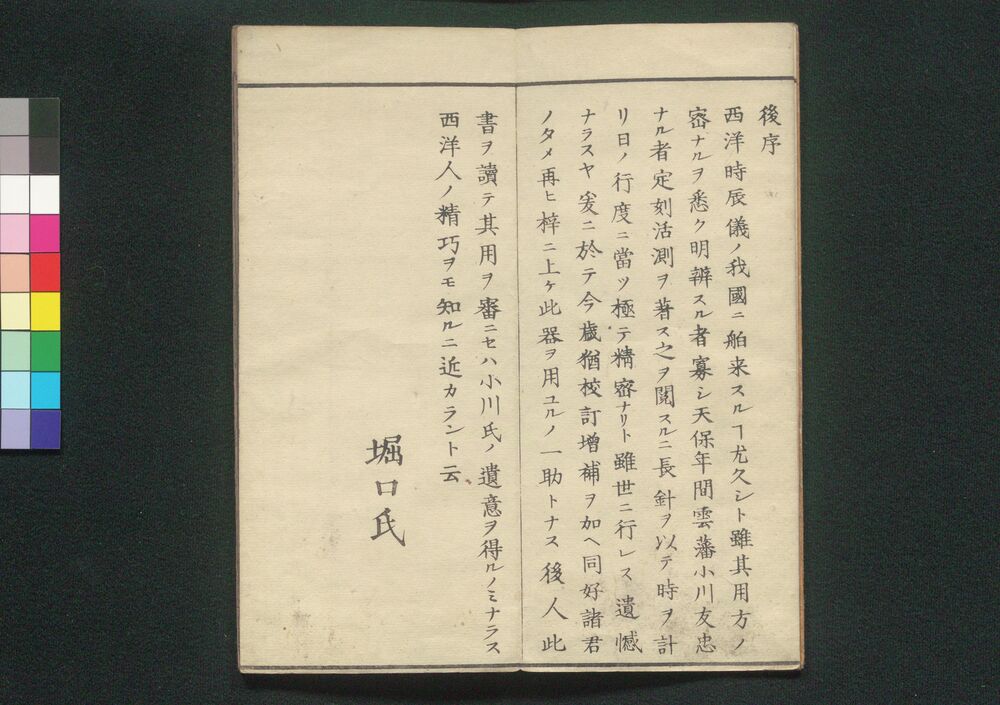 後序
西洋時辰儀ノ我國ニ舶来スルヿ尤久シト雖其用方ノ
宻ナルヲ悉ク明辨スル者寡シ天保年間雲藩小川友忠
ナル者定刻活測ヲ著ス之ヲ閲スルニ長針ヲ以テ時ヲ計
リ日ノ行度ニ當ツ極テ精宻ナリト雖世ニ行レス遺憾
ナラスヤ爰ニ於テ今歳猶校訂増補ヲ加ヘ同好諸君
ノタメ再ヒ梓ニ上ケ此器ヲ用ユルノ一助トナス後人此
書ヲ讀テ其用ヲ審ニセハ小川氏ノ遺意ヲ得ルノミナラス
西洋人ノ精巧ヲモ知ルニ近カラント云
堀口氏